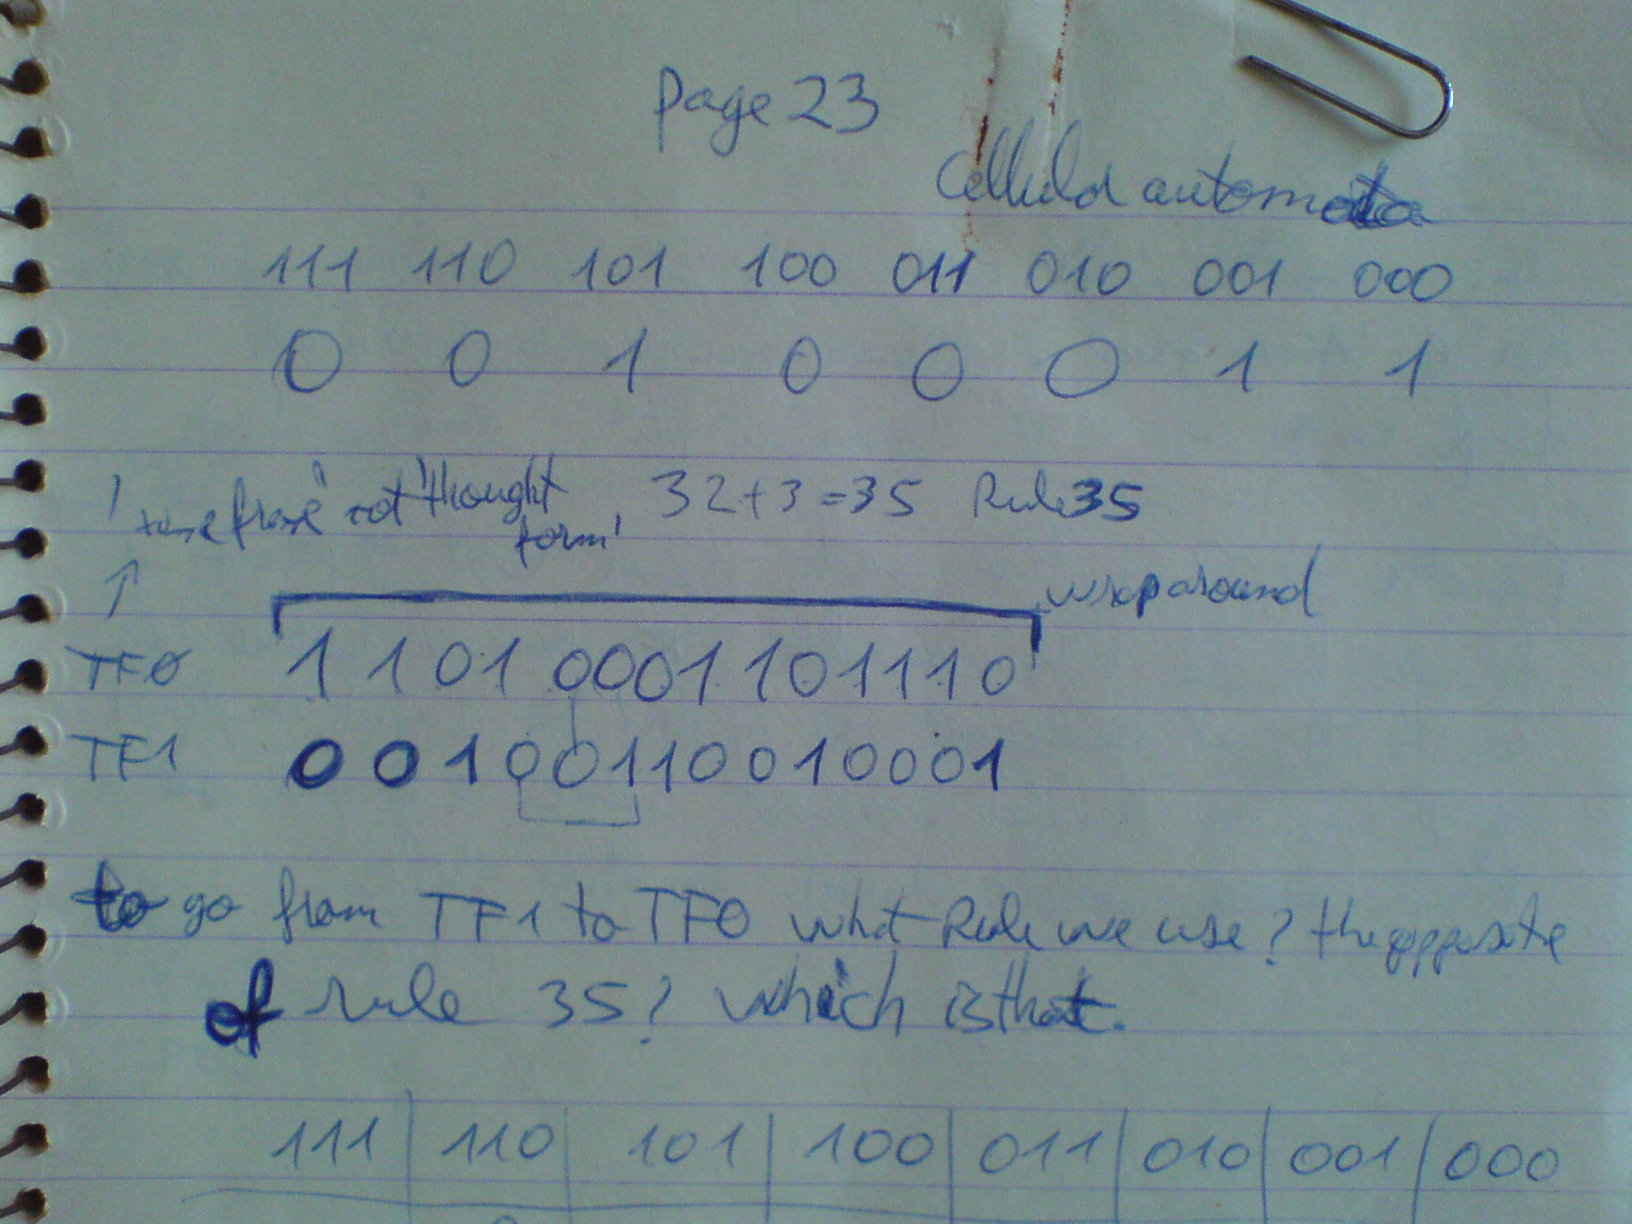 page 23
Cellular automata
111 110 101 100 011 010 001 000
0 0 1 0 0 0 1 1
'time frame' not 'thought form' 32+3=35 Rule 35
↑ wraparound
TF0 1 1 0 1 0 0 0 1 1 0 1 1 1 0
TF1 0 0 1 0 0 1 1 0 0 1 0 0 0 1
to go from TF1 to TF0 what Rule we use? the opposite
of rule 35? which is that.
111 | 110 | 101 | 100 | 011 | 010 | 001 | 000